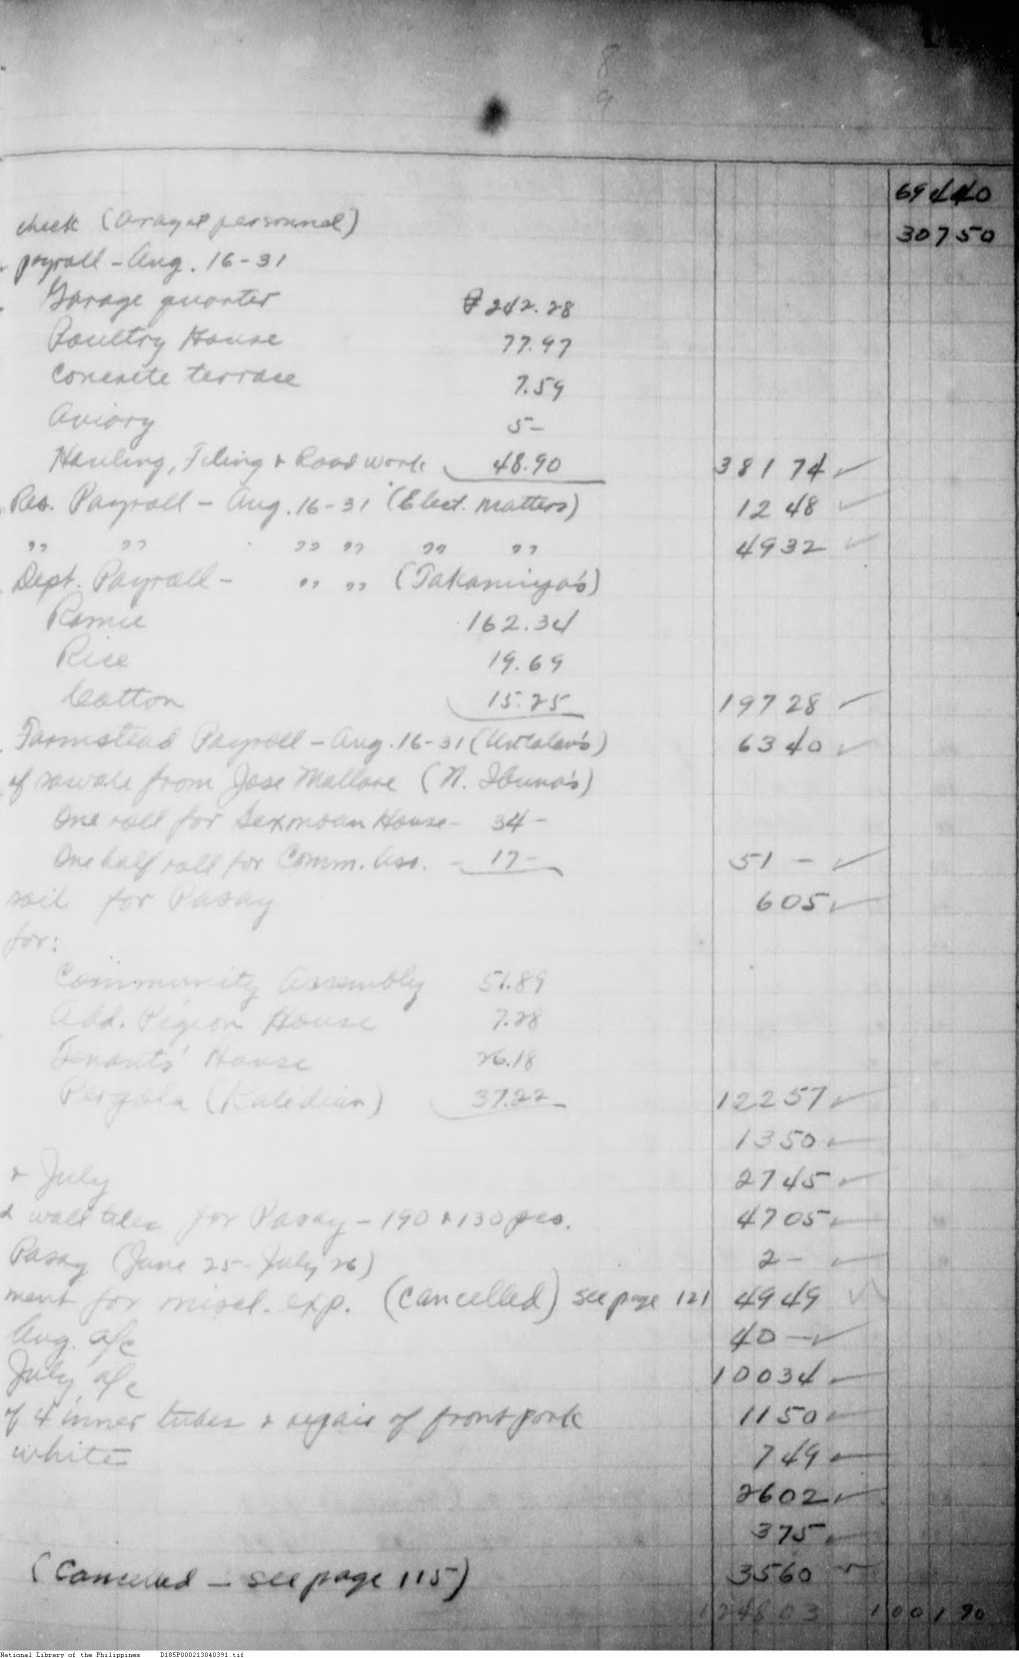 8
9
694 40
check (Arayat personnel) 307 50
payroll - Aug. 16-31
Garage quarter ₱ 242.28
Poultry House 77.97
Concrete terrace 7.59
Aviary 5-
Hauling, Filing & Road work 48.90 381 74 ✓
Res. Payroll - Aug. 16-31 (Elect. matters) 12 48 ✓
" " " " " " 49 32 ✓
Dept. Payroll - " " (Takamiya's)
Ramie 162.34
Rice 19.69
Cotton 15.25 197 28 ✓
Farmstead Payroll - Aug. 16-31 ( 63 40 ✓
of sawale from Jose Mallare (N. Ibuna's)
One roll for Sexmoan House - 34 -
One half roll for Comm. Ass. - 17 - 51 - ✓
for Pasay 6 05 ✓
for:
Community Assembly 51.89
Add. Pigeon House 7.28
Tenants' House 26.18
Pergola ( 37.22 122 57 ✓
13 50 ✓
& July 27 45 ✓
& wall tiles for Pasay - 190 & 130 pcs. 47 05 ✓
Pasay (June 25 - July 26) 2 - ✓
ment for miscl. exp. (Cancelled) see page 121 49 49 ✓
Aug. a/c 40 - ✓
July a/c 100 34 ✓
of 4 inner tubes & repair of front fork 11 50 ✓
white 7 49 ✓
26 02 ✓
3 75 ✓
(Cancelled - see page 115) 35 60 ✓
1248 03 1001 90
National Library of the Philippines D185P000213040391.tif